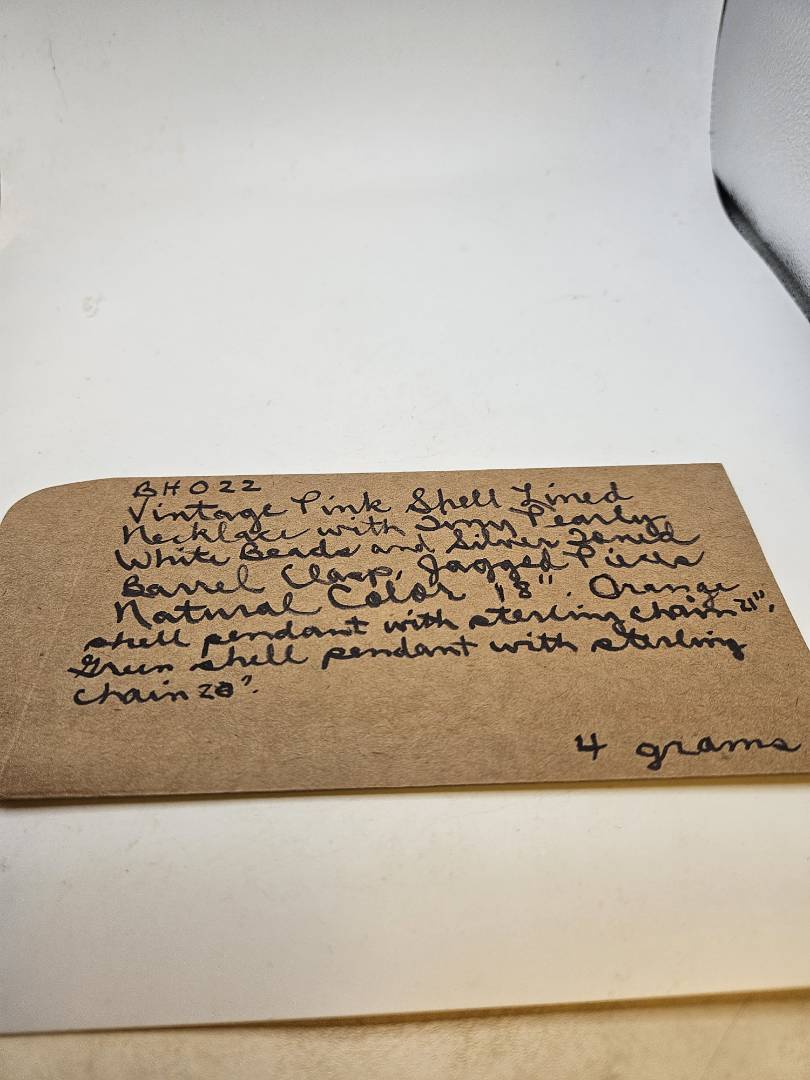 BH022
Vintage Pink Shell Lined
Necklace with Tiny Pearly
White Beads and Silver Toned
Barrel Clasp, Jagged Pieces
Natural Color 18". Orange
shell pendant with sterling chain 21".
Green shell pendant with sterling
chain 20".
4 grams